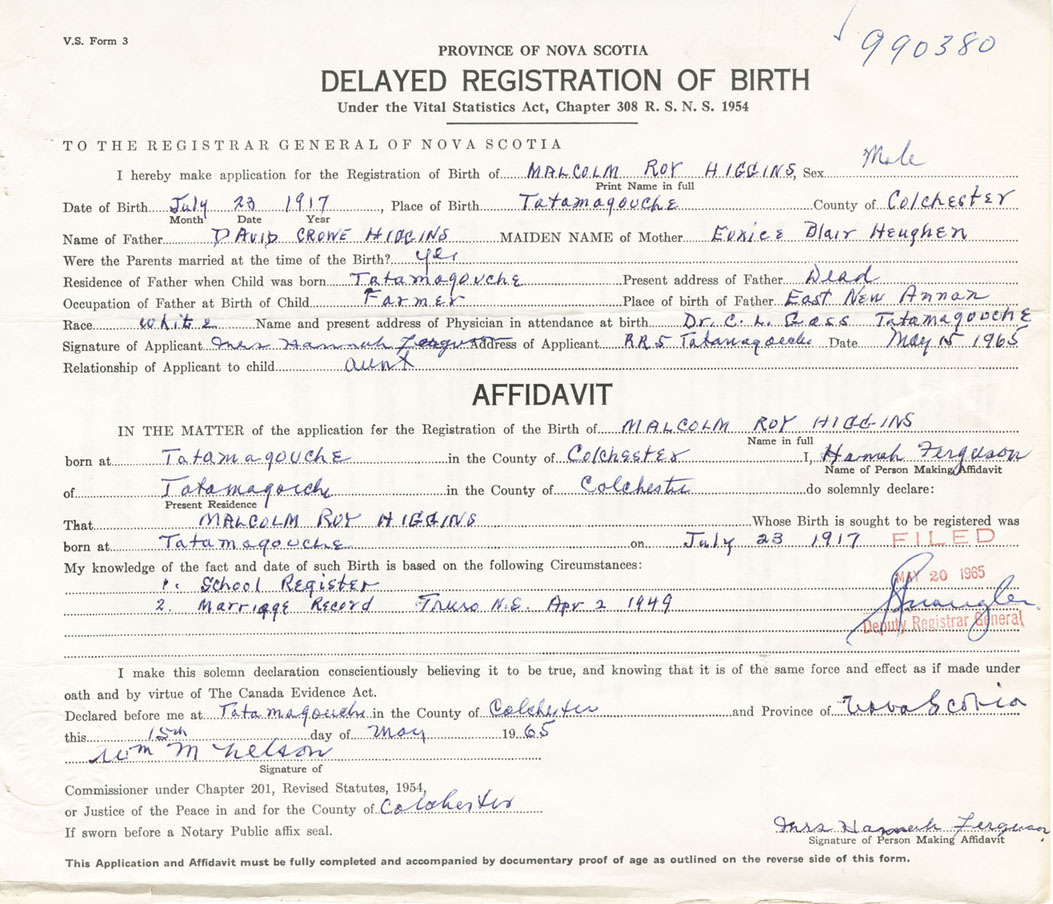 V.S. Form 3
990380
PROVINCE OF NOVA SCOTIA
DELAYED REGISTRATION OF BIRTH
Under the Vital Statistics Act, Chapter 308 R. S. N. S. 1954
TO THE REGISTRAR GENERAL OF NOVA SCOTIA
I hereby make application for the Registration of Birth of MALCOLM ROY HIGGINS, Sex Male
Print Name in full
Date of Birth July 23 1917, Place of Birth Tatamagouche County of Colchester
Month Date Year
Name of Father DAVID CROWE HIGGINS MAIDEN NAME of Mother Eunice Blair Heughen
Were the Parents married at the time of the Birth? yes
Residence of Father when Child was born Tatamagouche Present address of Father Dead
Occupation of Father at Birth of Child Farmer Place of birth of Father East New Annan
Race White Name and present address of Physician in attendance at birth Dr. C. L. Gass Tatamagouche
Signature of Applicant Mrs Hannah Ferguson Address of Applicant RR5 Tatamagouche Date May 15 1965
Relationship of Applicant to child aunt
AFFIDAVIT
IN THE MATTER of the application for the Registration of the Birth of MALCOLM ROY HIGGINS
Name in full
born at Tatamagouche in the County of Colchester I, Hannah Ferguson
Name of Person Making Affidavit
of Tatamagouche in the County of Colchester do solemnly declare:
Present Residence
That MALCOLM ROY HIGGINS Whose Birth is sought to be registered was
born at Tatamagouche on July 23 1917 FILED
My knowledge of the fact and date of such Birth is based on the following Circumstances:
MAY 20 1965
1. School Register
2. Marriage Record Truro N.S. Apr 2 1949
Deputy Registrar General
I make this solemn declaration conscientiously believing it to be true, and knowing that it is of the same force and effect as if made under
oath and by virtue of The Canada Evidence Act.
Declared before me at Tatamagouche in the County of Colchester and Province of Nova Scotia
this 15th day of May 1965
Wm M Nelson
Signature of
Commissioner under Chapter 201, Revised Statutes, 1954,
or Justice of the Peace in and for the County of Colchester
If sworn before a Notary Public affix seal.
Mrs Hannah Ferguson
Signature of Person Making Affidavit
This Application and Affidavit must be fully completed and accompanied by documentary proof of age as outlined on the reverse side of this form.